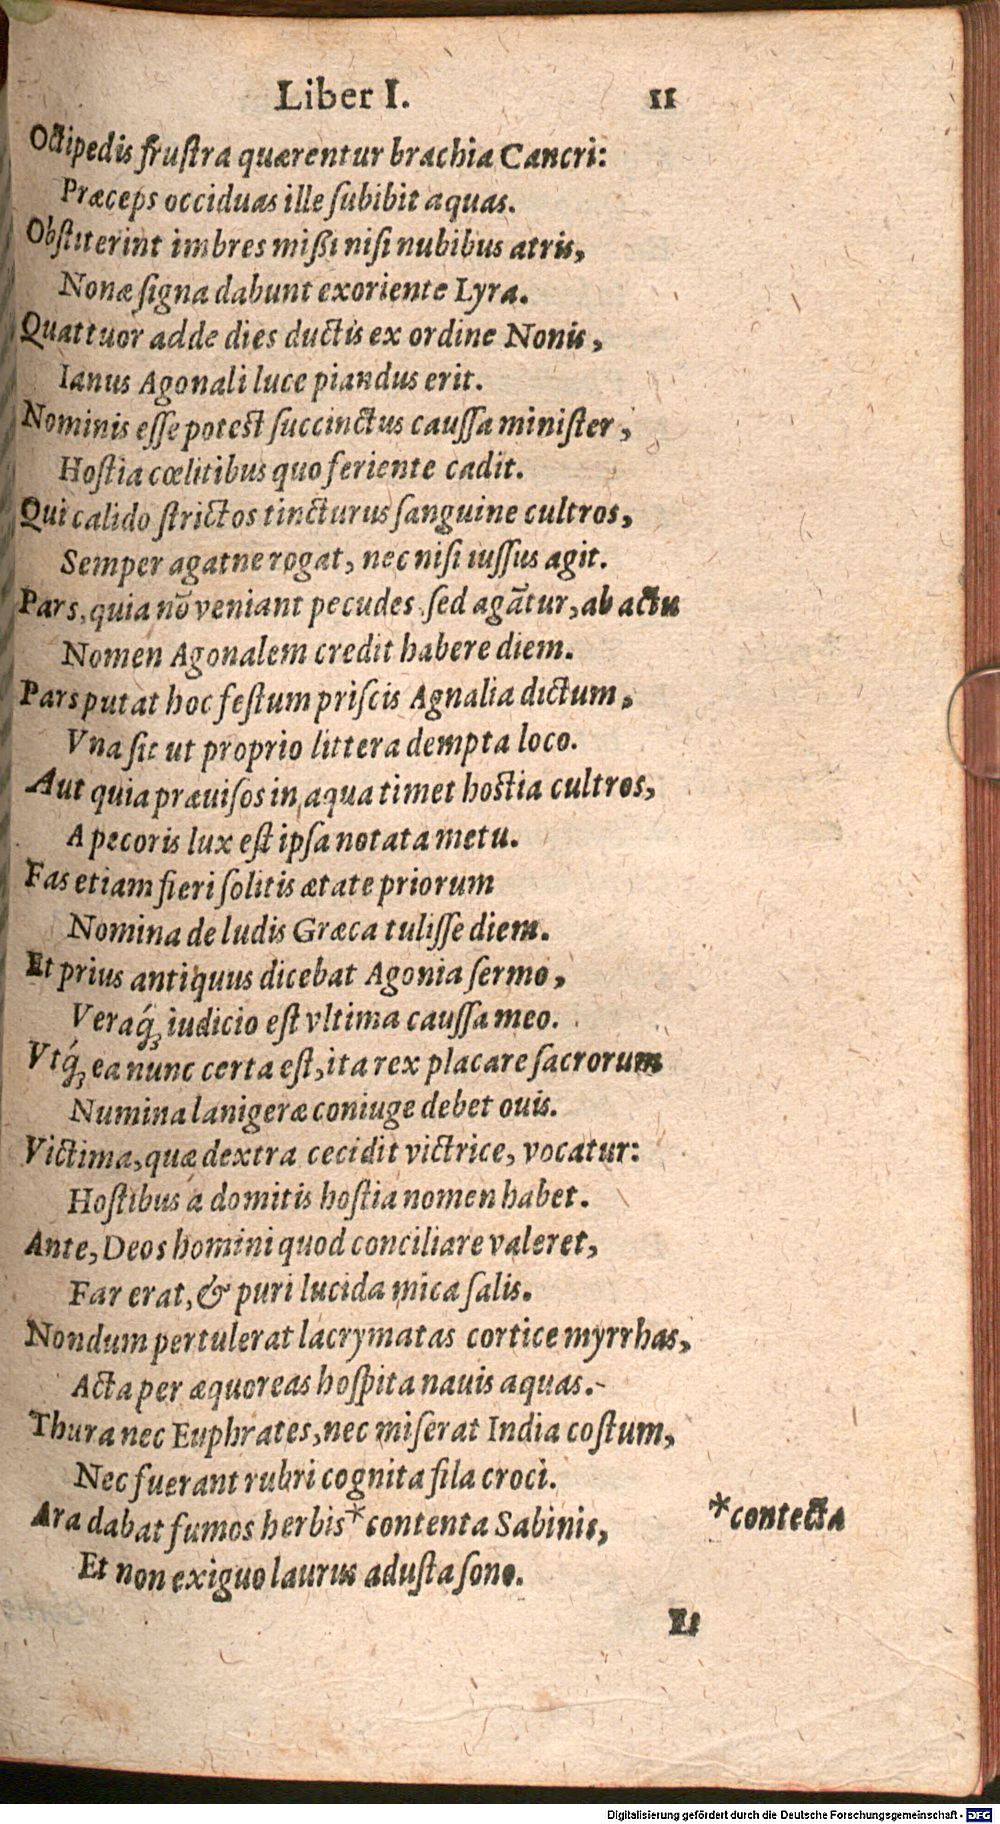 Liber I. 11
Octipedis frustra quærentur brachia Cancri:
Præceps occiduas ille subibit aquas.
Obstiterint imbres missi nisi nubibus atris,
Nonæ signa dabunt exoriente Lyra.
Quattuor adde dies ductis ex ordine Nonis,
Ianus Agonali luce piandus erit.
Nominis esse potest succinctus caussa minister,
Hostia cœlitibus quo feriente cadit.
Qui calido strictos tincturus sanguine cultros,
Semper agatne rogat, nec nisi iussus agit.
Pars, quia nō veniant pecudes sed agātur, ab actu
Nomen Agonalem credit habere diem.
Pars putat hoc festum priscis Agnalia dictum,
Vna sit ut proprio littera dempta loco.
Aut quia præuisos in aqua timet hostia cultros,
A pecoris lux est ipsa notata metu.
Fas etiam fieri solitis ætate priorum
Nomina de ludis Græca tulisse diem.
Et prius antiquus dicebat Agonia sermo,
Veraq́ꝫ iudicio est vltima caussa meo.
Vtq́ꝫ ea nunc certa est, ita rex placare sacrorum
Numina lanigeræ coniuge debet ouis.
Victima, quæ dextra cecidit victrice, vocatur:
Hostibus a domitis hostia nomen habet.
Ante, Deos homini quod conciliare valeret,
Far erat, & puri lucida mica salis.
Nondum pertulerat lacrymatas cortice myrrhas,
Acta per æquoreas hospita nauis aquas.
Thura nec Euphrates, nec miserat India costum,
Nec fuerant rubri cognita fila croci.
Ara dabat fumos herbis *contenta Sabinis, *contecta
Et non exiguo laurus adusta sono.
Digitalisierung gefördert durch die Deutsche Forschungsgemeinschaft - DFG